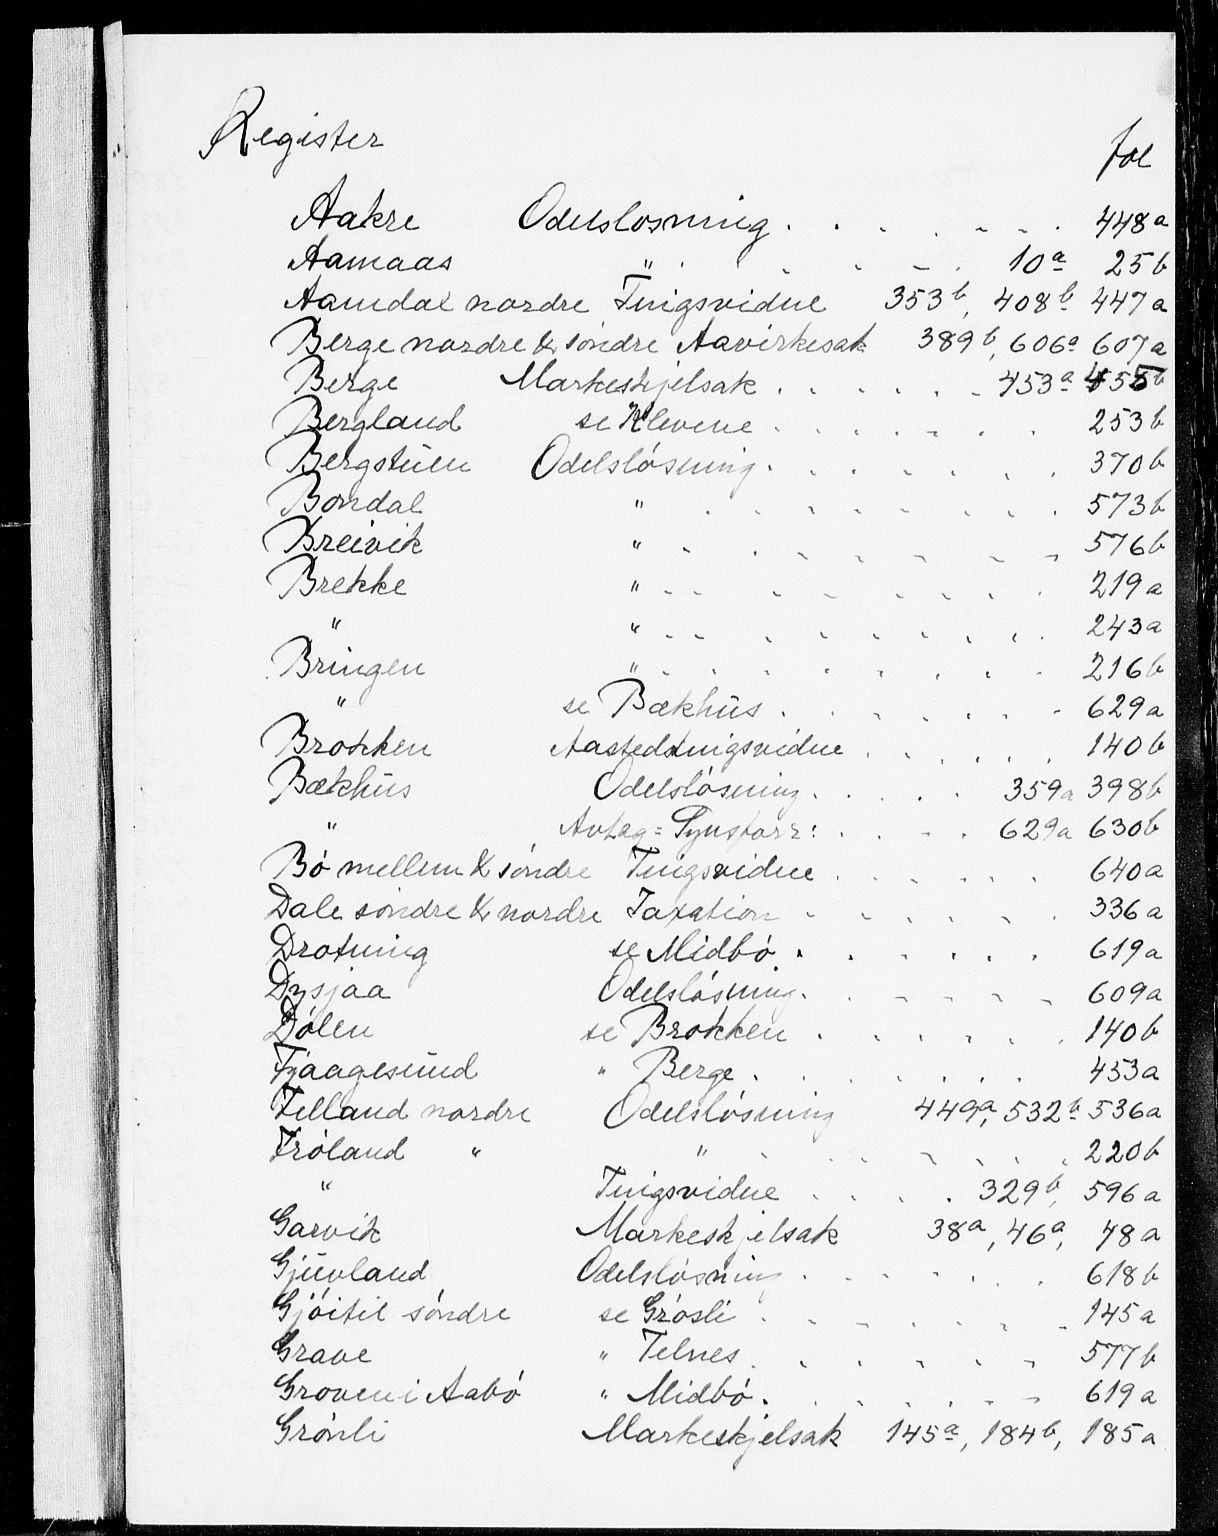 Register
fol
Aakre Odelsløsning . . . . . . 448a
Aamaas " . . . . 10a 25b
Aamdal nordre Tingsvidne 353b, 408b 447a
Berge nordre & søndre Aavirkesak 389b, 606a 607a
Berge Markeskjelsak . . . . . 453a 455b
Bergland se Klevene . . . . . . 253b
Bergstuen Odelsløsning . . . . . . 370b
Bondal " . . . . . . . 573b
Breivik " . . . . . . . 576b
Brekke " . . . . . . . 219a
" " . . . . . . . 243a
Bringen " . . . . . . . 216b
" se Bækhus . . . . . . 629a
Brokken Aastedstingsvidne . . . . . 140b
Bækhus Odelsløsning . . . . 359a 398b
" Avtag = Synsforr: . . . . 629a 630b
Bø mellem & søndre Tingsvidne . . . . . 640a
Dale søndre & nordre Taxation . . . . . . 336a
Drotning se Midbø . . . . . . 619a
Dysjaa Odelsløsning . . . . . . 609a
Dølen se Brokken . . . . . . 140b
Fjaagesund " Berge . . . . . . 453a
Felland nordre Odelsløsning 449a, 532b 536a
Frøland " " . . . . . . 220b
" Tingsvidne . . . . 329b, 596a
Garvik Markeskjelsak 38a, 46a, 48a
Gjuvland Odelsløsning . . . . . . 618b
Gjøitil søndre se Grøsli . . . . . . 145a
Grave " Telnes . . . . . . 577b
Groven i Aabø " Midbø . . . . . . 619a
Grønli Markeskjelsak 145a, 184b, 185a